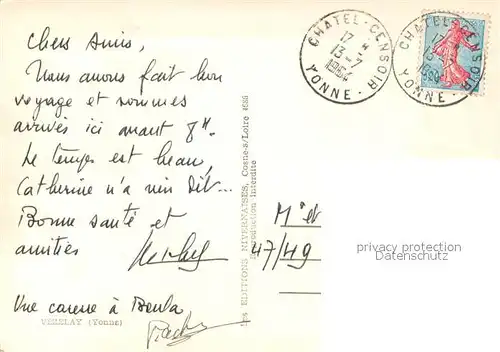 Chers Amis,
Nous avons fait bon
voyage et sommes
arrivés ici avant 8H.
Le temps est beau,
Catherine n'a rien dit...
Bonne santé et
amitiés
Une caresse à
VEZELAY (Yonne)
Les EDITIONS NIVERNAISES, Cosne-s/Loire
Reproduction interdite
CHATEL-CENSOIR
17 H
13-7
1964
YONNE
CHATEL-CENSOIR
YONNE
M et
47/49
privacy protection
Datenschutz